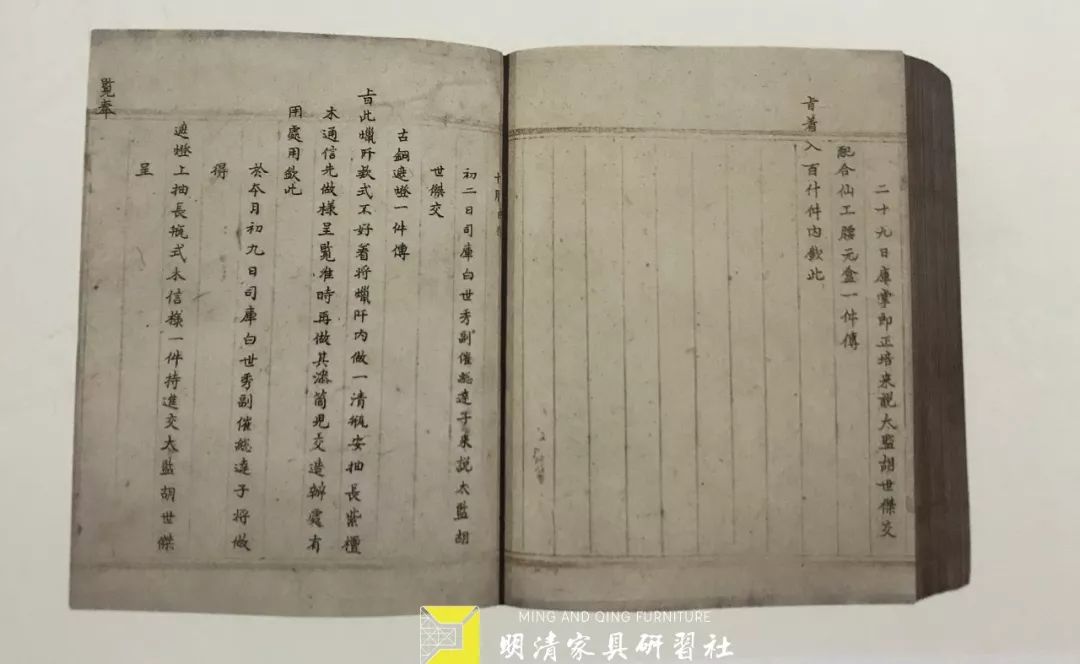 二十九日庫掌即正培來說太監胡世傑交
配合仙工腰元盒一件傳
旨着入百什件內欽此
初二日司庫白世秀副催総達子來說太監胡
世傑交
古銅遮燈一件傳
旨此蠟阡款式不好着將蠟阡內做一清瓶安抽長紫檀
木通信先做樣呈覽准時再做其漆筒兒交造辦處有
用處用欽此
於本月初九日司庫白世秀副催総達子將做
得
遮燈上抽長瓶式木信樣一件持進交太監胡世傑
呈
覽奉
MING AND QING FURNITURE
明清家具研習社